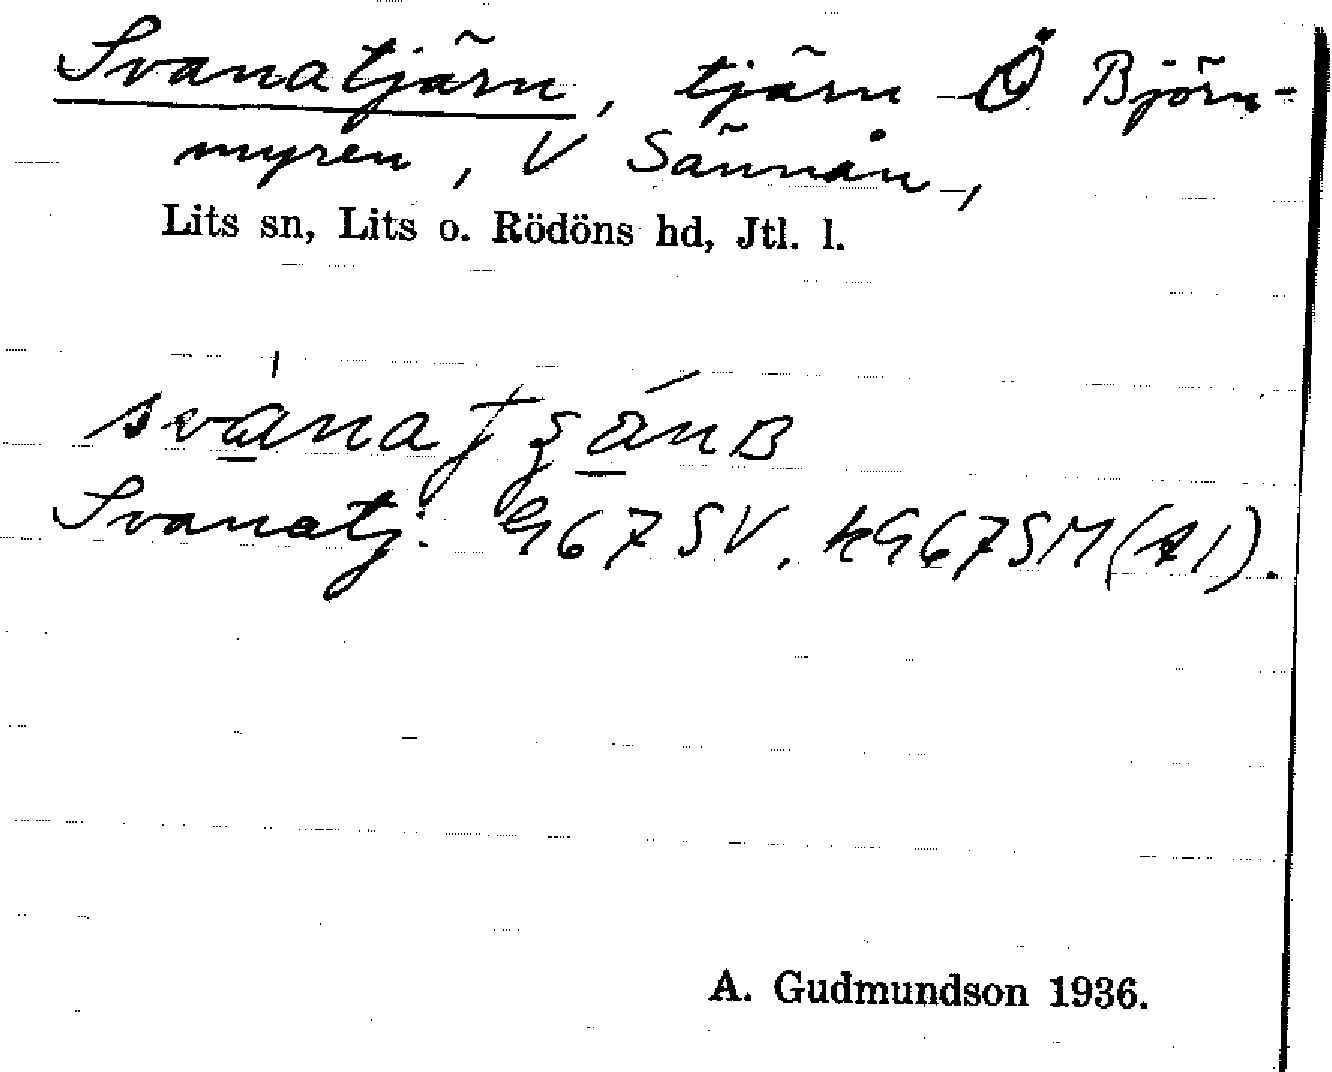 Svanatjärn, tjärn Ö Björn-
myren, V Sännån,
Lits sn, Lits o. Rödöns hd, Jtl. l.
Svanatj. G67SV. kG67SM(A1).
A. Gudmundson 1936.